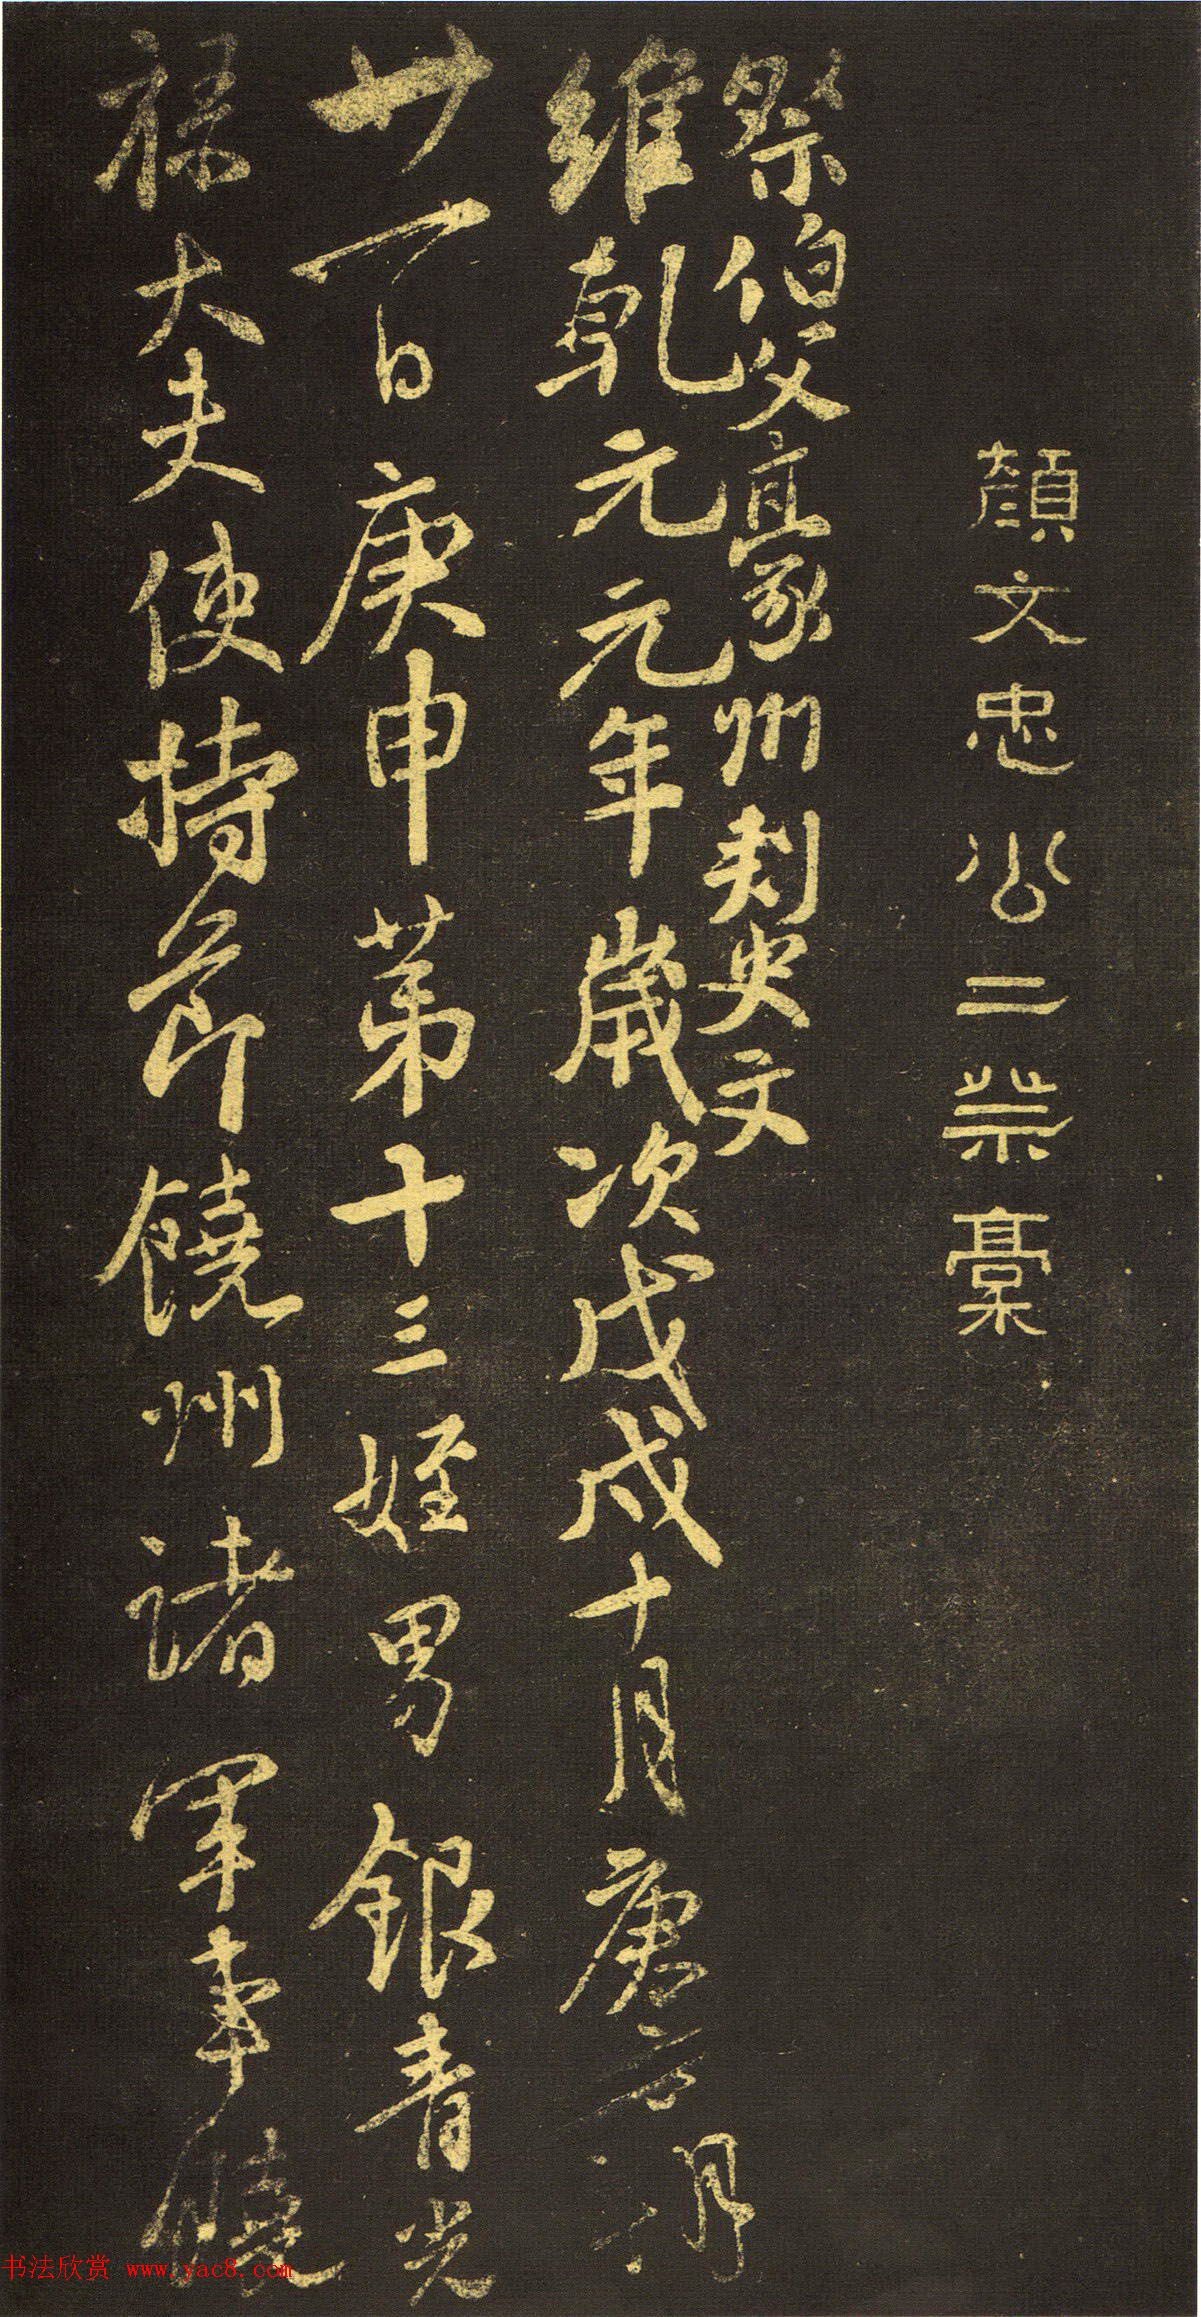 顏文忠公二祭稾
祭伯父豪州刺史文
維乾元元年歲次戊戌十月庚午朔
廿一日庚申第十三姪男銀青光
祿大夫使持節饒州諸軍事饒
书法欣赏 www.yac8.com